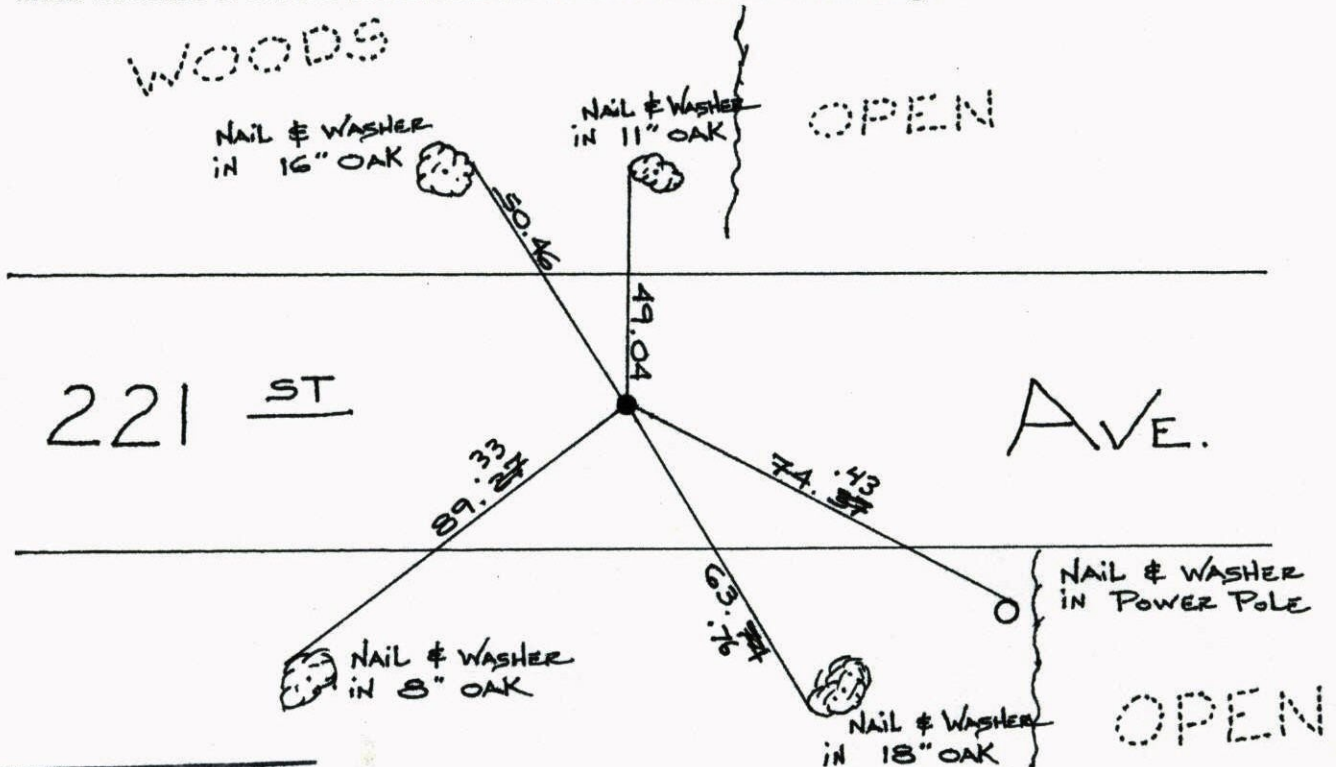 WOODS
OPEN
NAIL & WASHER
IN 16" OAK
NAIL & WASHER
IN 11" OAK
50.46
49.04
221 ST
AVE.
89.27
.33
74.37
.43
63.
.76
NAIL & WASHER
IN POWER POLE
NAIL & WASHER
IN 8" OAK
NAIL & WASHER
IN 18" OAK
OPEN